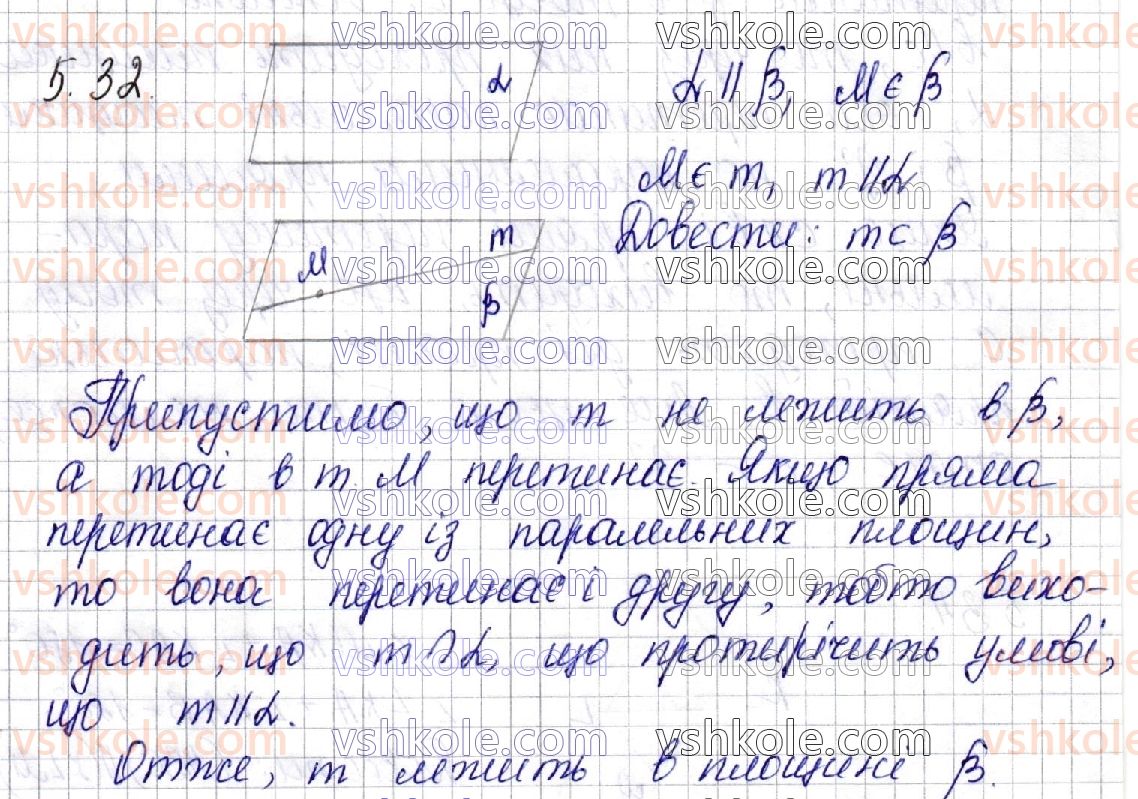 5.32.
α
α || β, M є β
M є m, m || α
Довести: m ⊂ β
M
m
β
Припустимо, що m не лежить в β,
а тоді в т. M перетинає. Якщо пряма
перетинає одну із паралельних площин,
то вона перетинає і другу, тобто вихо-
дить, що m ∩ α, що протирічить умові,
що m || α.
Отже, m лежить в площині β.
vshkole.com